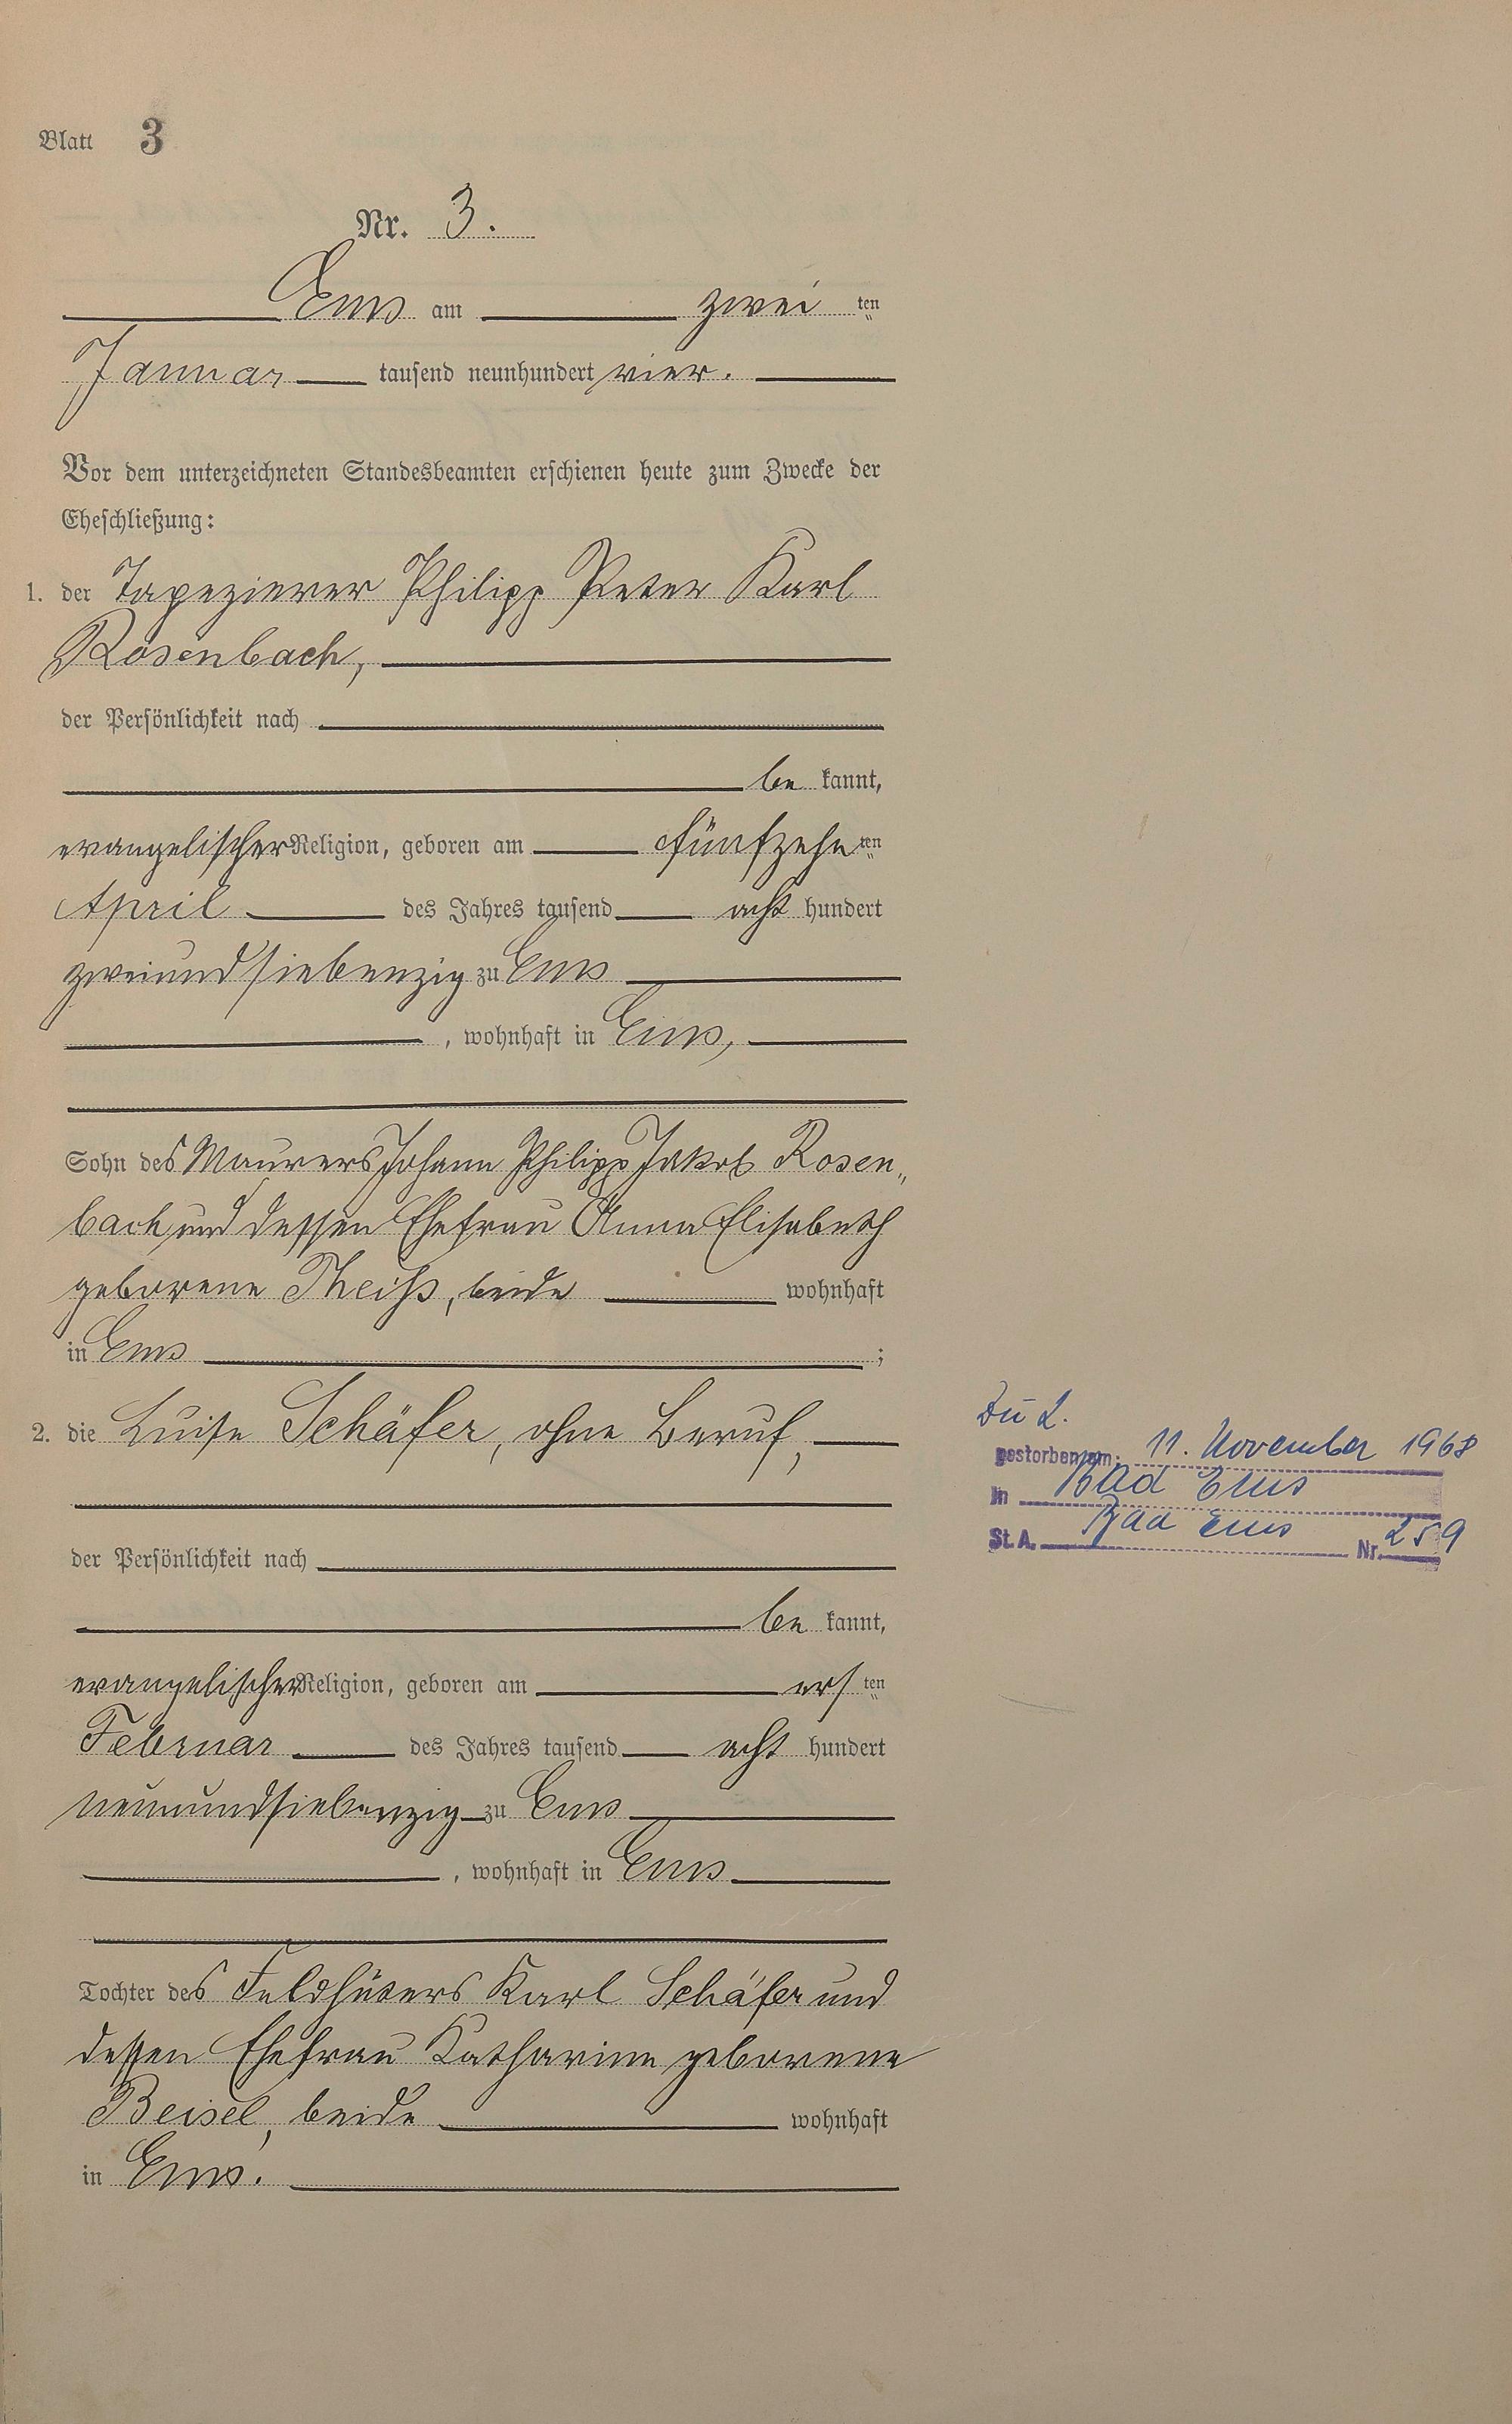 Blatt 3
Nr. 3.
Ems am zwei ten
Januar tausend neunhundert vier.
Vor dem unterzeichneten Standesbeamten erschienen heute zum Zwecke der
Eheschließung:
1. der Tapezierer Philipp Peter Karl
Rosenbach,
der Persönlichkeit nach
be kannt,
evangelischer Religion, geboren am fünfzehn ten
April des Jahres tausend acht hundert
zweiundsiebenzig zu Ems
, wohnhaft in Ems,
Sohn des Maurers Johann Philipp Jakob Rosen„
bach und dessen Ehefrau Anna Elisabeth
geborene Theiß, beide wohnhaft
in Ems ;
2. die Luise Schäfer, ohne Beruf,
der Persönlichkeit nach
be kannt,
evangelischer Religion, geboren am ers ten
Februar des Jahres tausend acht hundert
neunundsiebenzig zu Ems
, wohnhaft in Ems
Tochter des Feldhüters Karl Schäfer und
dessen Ehefrau Katharine geborene
Beisel, beide wohnhaft
in Ems.
Zu 2.
gestorben am: 11. November 1968
In Bad Ems
St. A. Bad Ems Nr. 259